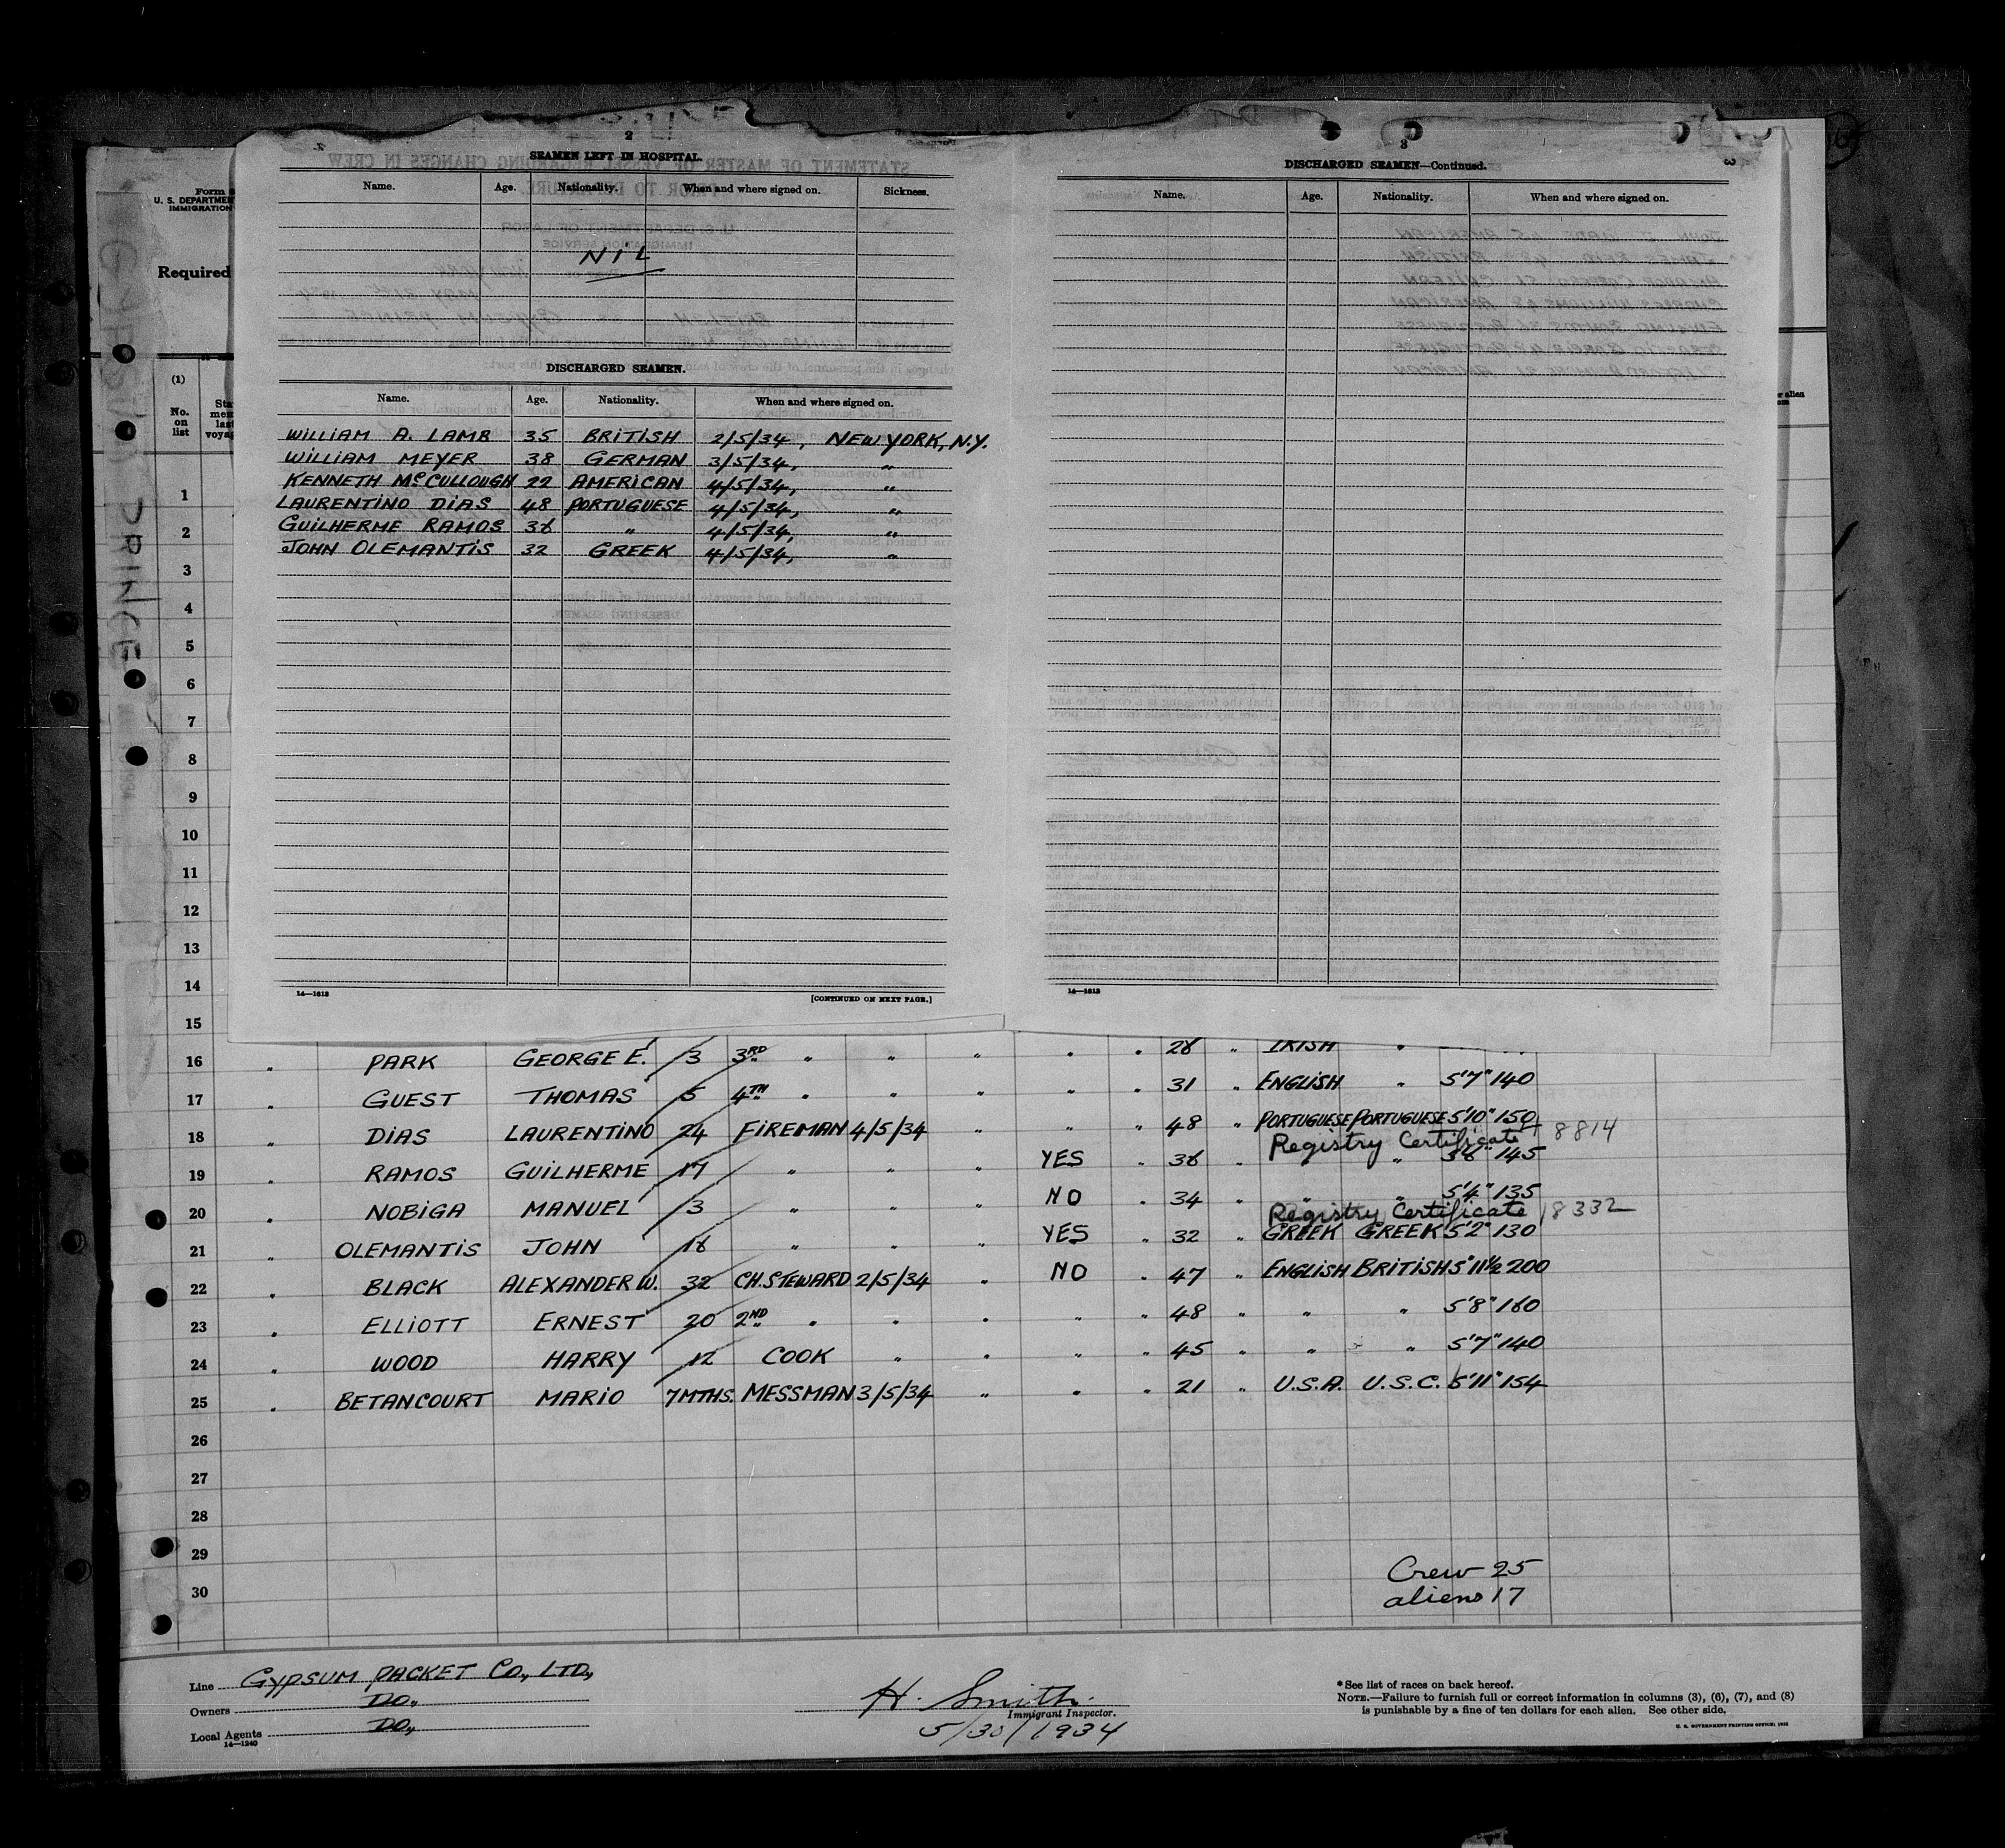 2
SEAMEN LEFT IN HOSPITAL.
Name. Age. Nationality. When and where signed on. Sickness.
NIL
DISCHARGED SEAMEN.
Name. Age. Nationality. When and where signed on.
WILLIAM A. LAMB 35 BRITISH 2/5/34, NEW YORK, N.Y.
WILLIAM MEYER 38 GERMAN 3/5/34, "
KENNETH McCULLOUGH 22 AMERICAN 4/5/34, "
LAURENTINO DIAS 48 PORTUGUESE 4/5/34, "
GUILHERME RAMOS 38 " 4/5/34, "
JOHN OLEMANTIS 32 GREEK 4/5/34, "
14—1613
[CONTINUED ON NEXT PAGE.]
3
DISCHARGED SEAMEN—Continued.
Name. Age. Nationality. When and where signed on.
14—1613
Form
U. S. DEPARTMENT
IMMIGRATION
Required
GYPSUM PRINCE
(1)
No. on list
1
2
3
4
5
6
7
8
9
10
11
12
13
14
15
16 " PARK GEORGE E. 3 3RD " " " " " 28 " IRISH "
17 " GUEST THOMAS 5 4TH " " " " " 31 " ENGLISH " 5'7" 140
18 " DIAS LAURENTINO 24 FIREMAN 4/5/34 " " " 48 " PORTUGUESE PORTUGUESE 5'10" 150
Registry Certificate 8814
19 " RAMOS GUILHERME 17 " " " YES " 38 " " 5'8" 145
20 " NOBIGA MANUEL 3 " " " NO " 34 " " " 5'4" 135
Registry Certificate 18332
21 " OLEMANTIS JOHN 18 " " " YES " 32 " GREEK GREEK 5'2" 130
22 " BLACK ALEXANDER W. 32 CH. STEWARD 2/5/34 " NO " 47 " ENGLISH BRITISH 5'11½ 200
23 " ELLIOTT ERNEST 20 2ND " " " " " 48 " " " 5'8" 160
24 " WOOD HARRY 12 COOK " " " " 45 " " " 5'7" 140
25 " BETANCOURT MARIO 7 MTHS. MESSMAN 3/5/34 " " " 21 " U.S.A. U.S.C. 5'11" 154
26
27
28
29
30
Crew 25
aliens 17
Line GYPSUM PACKET CO., LTD.,
Owners DO.,
Local Agents DO.,
14—1240
H. Smith
Immigrant Inspector.
5/30/1934
*See list of races on back hereof.
NOTE.—Failure to furnish full or correct information in columns (3), (6), (7), and (8)
is punishable by a fine of ten dollars for each alien. See other side.
U. S. GOVERNMENT PRINTING OFFICE: 1932